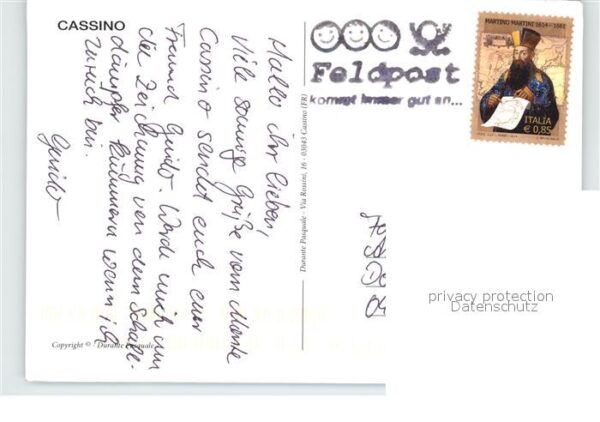 CASSINO
Hallo ihr lieben,
Viele sonnige Grüße vom Monte
Cassino sendet euch euer
Freund Guido. Werde mich um
die Zeichnung von dem Schall-
dämpfer kümmern wenn ich
zurück bin.
Guido
Copyright © Durante Pasquale
Durante Pasquale - Via Rossini, 16 - 03043 Cassino (FR)
Feldpost
kommt immer gut an...
MARTINO MARTINI 1614-1661
ITALIA
€ 0,85
privacy protection
Datenschutz